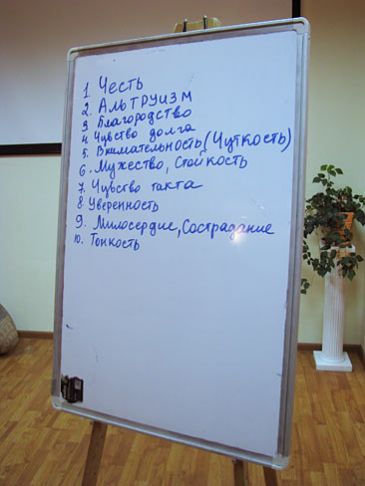 1. Честь
2. АльТРУИЗМ
3 Благородство
4 Чувство долга
5. Внимательность (Чуткость)
6. Мужество, Стойкость
7. Чувство такта
8 Уверенность
9. Милосердие, Сострадание
10. Тонкость